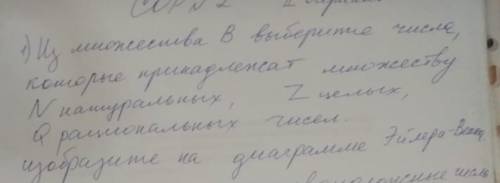 СОР N 2 2 вариант
1) Из множества В выберите числа,
которые принадлежат множеству
N натуральных, Z целых,
Q рациональных чисел.
изобразите на диаграмме Эйлера-Венна.